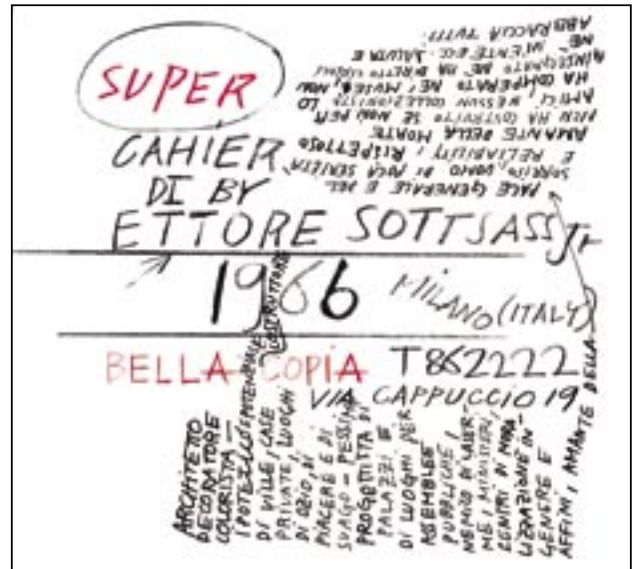 SUPER
CAHIER
DI BY
ETTORE SOTTSASS Jr
1966
MILANO (ITALY)
BELLA COPIA T862222
VIA CAPPUCCIO 19
ARCHITETTO
DECORATORE
COLORISTA —
COSTRUTTORE
DI VILLE, CASE
PRIVATE, LUOGHI
DI OZIO, DI
PIACERE E DI
SVAGO - PESSIMO
PROGETTISTA DI
PALAZZI E
DI LUOGHI PER
ASSEMBLEE
PUBBLICHE,
NEMICO DI CASER-
ME, MINISTERI,
CENTRI DI MORA-
LIZZAZIONE IN
GENERE E
AFFINI, AMANTE DELLA
PACE GENERALE E DEL
SORRISO, UOMO DI POCA SERIETA'
E RELIABILITY, RISPETTOSO
AMANTE DELLA MORTE
NON HA COSTRUITO SE NON PER
AMICI, NESSUN COLLEZIONISTA LO
HA COMPERATO NE' MUSEI, NON
INSEGNATO NE' HA DIRETTO
NE' NIENTE ECC. SALUTA E
ABBRACCIA TUTTI.